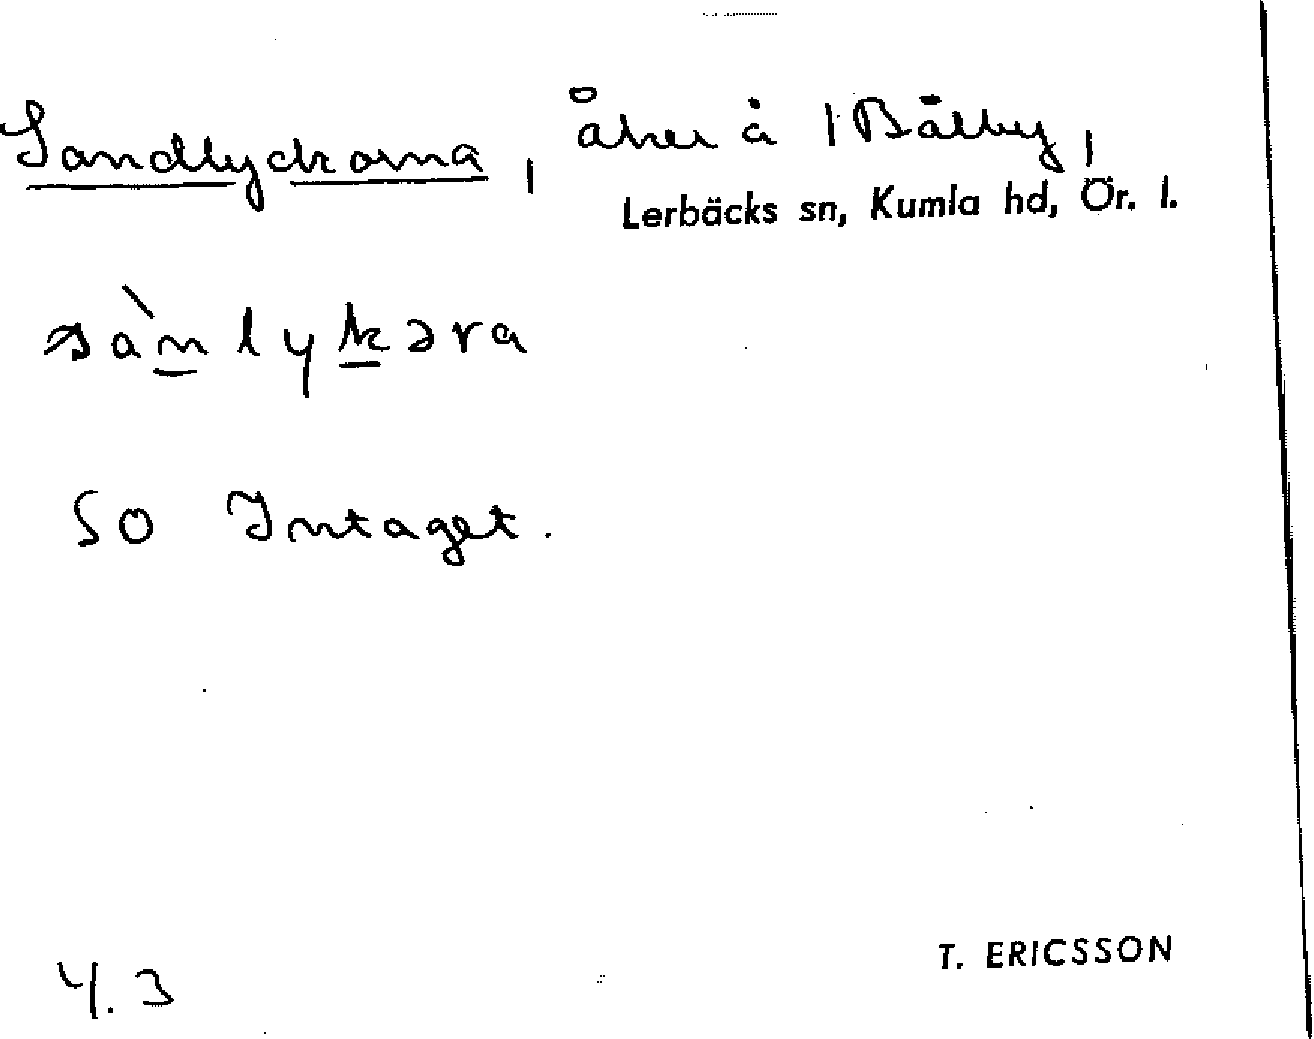 Sandlyckorna, åker å 1 Bälby,
Lerbäcks sn, Kumla hd, Ör. l.
sànlykəra
SO Intaget.
4.3
T. ERICSSON